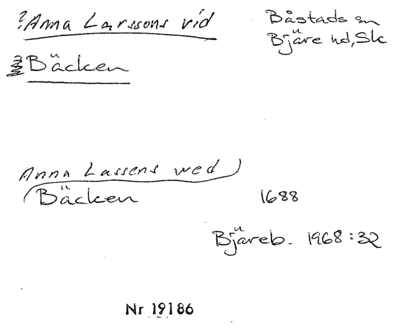 ?Anna Larssons vid
Bäcken
Båstads sn
Bjäre hd, Sk
Anna Lassens wed
Bäcken 1688
Bjäreb. 1968:32
Nr 19186